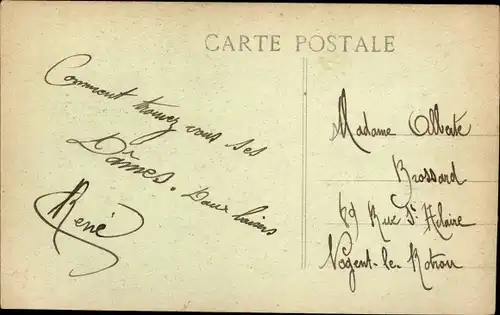 CARTE POSTALE
Comment trouvez vous ses
Dames. Doux baisers
René
Madame Alberte
Brossard
69 Rue St Hilaire
Nogent-le-Rotrou